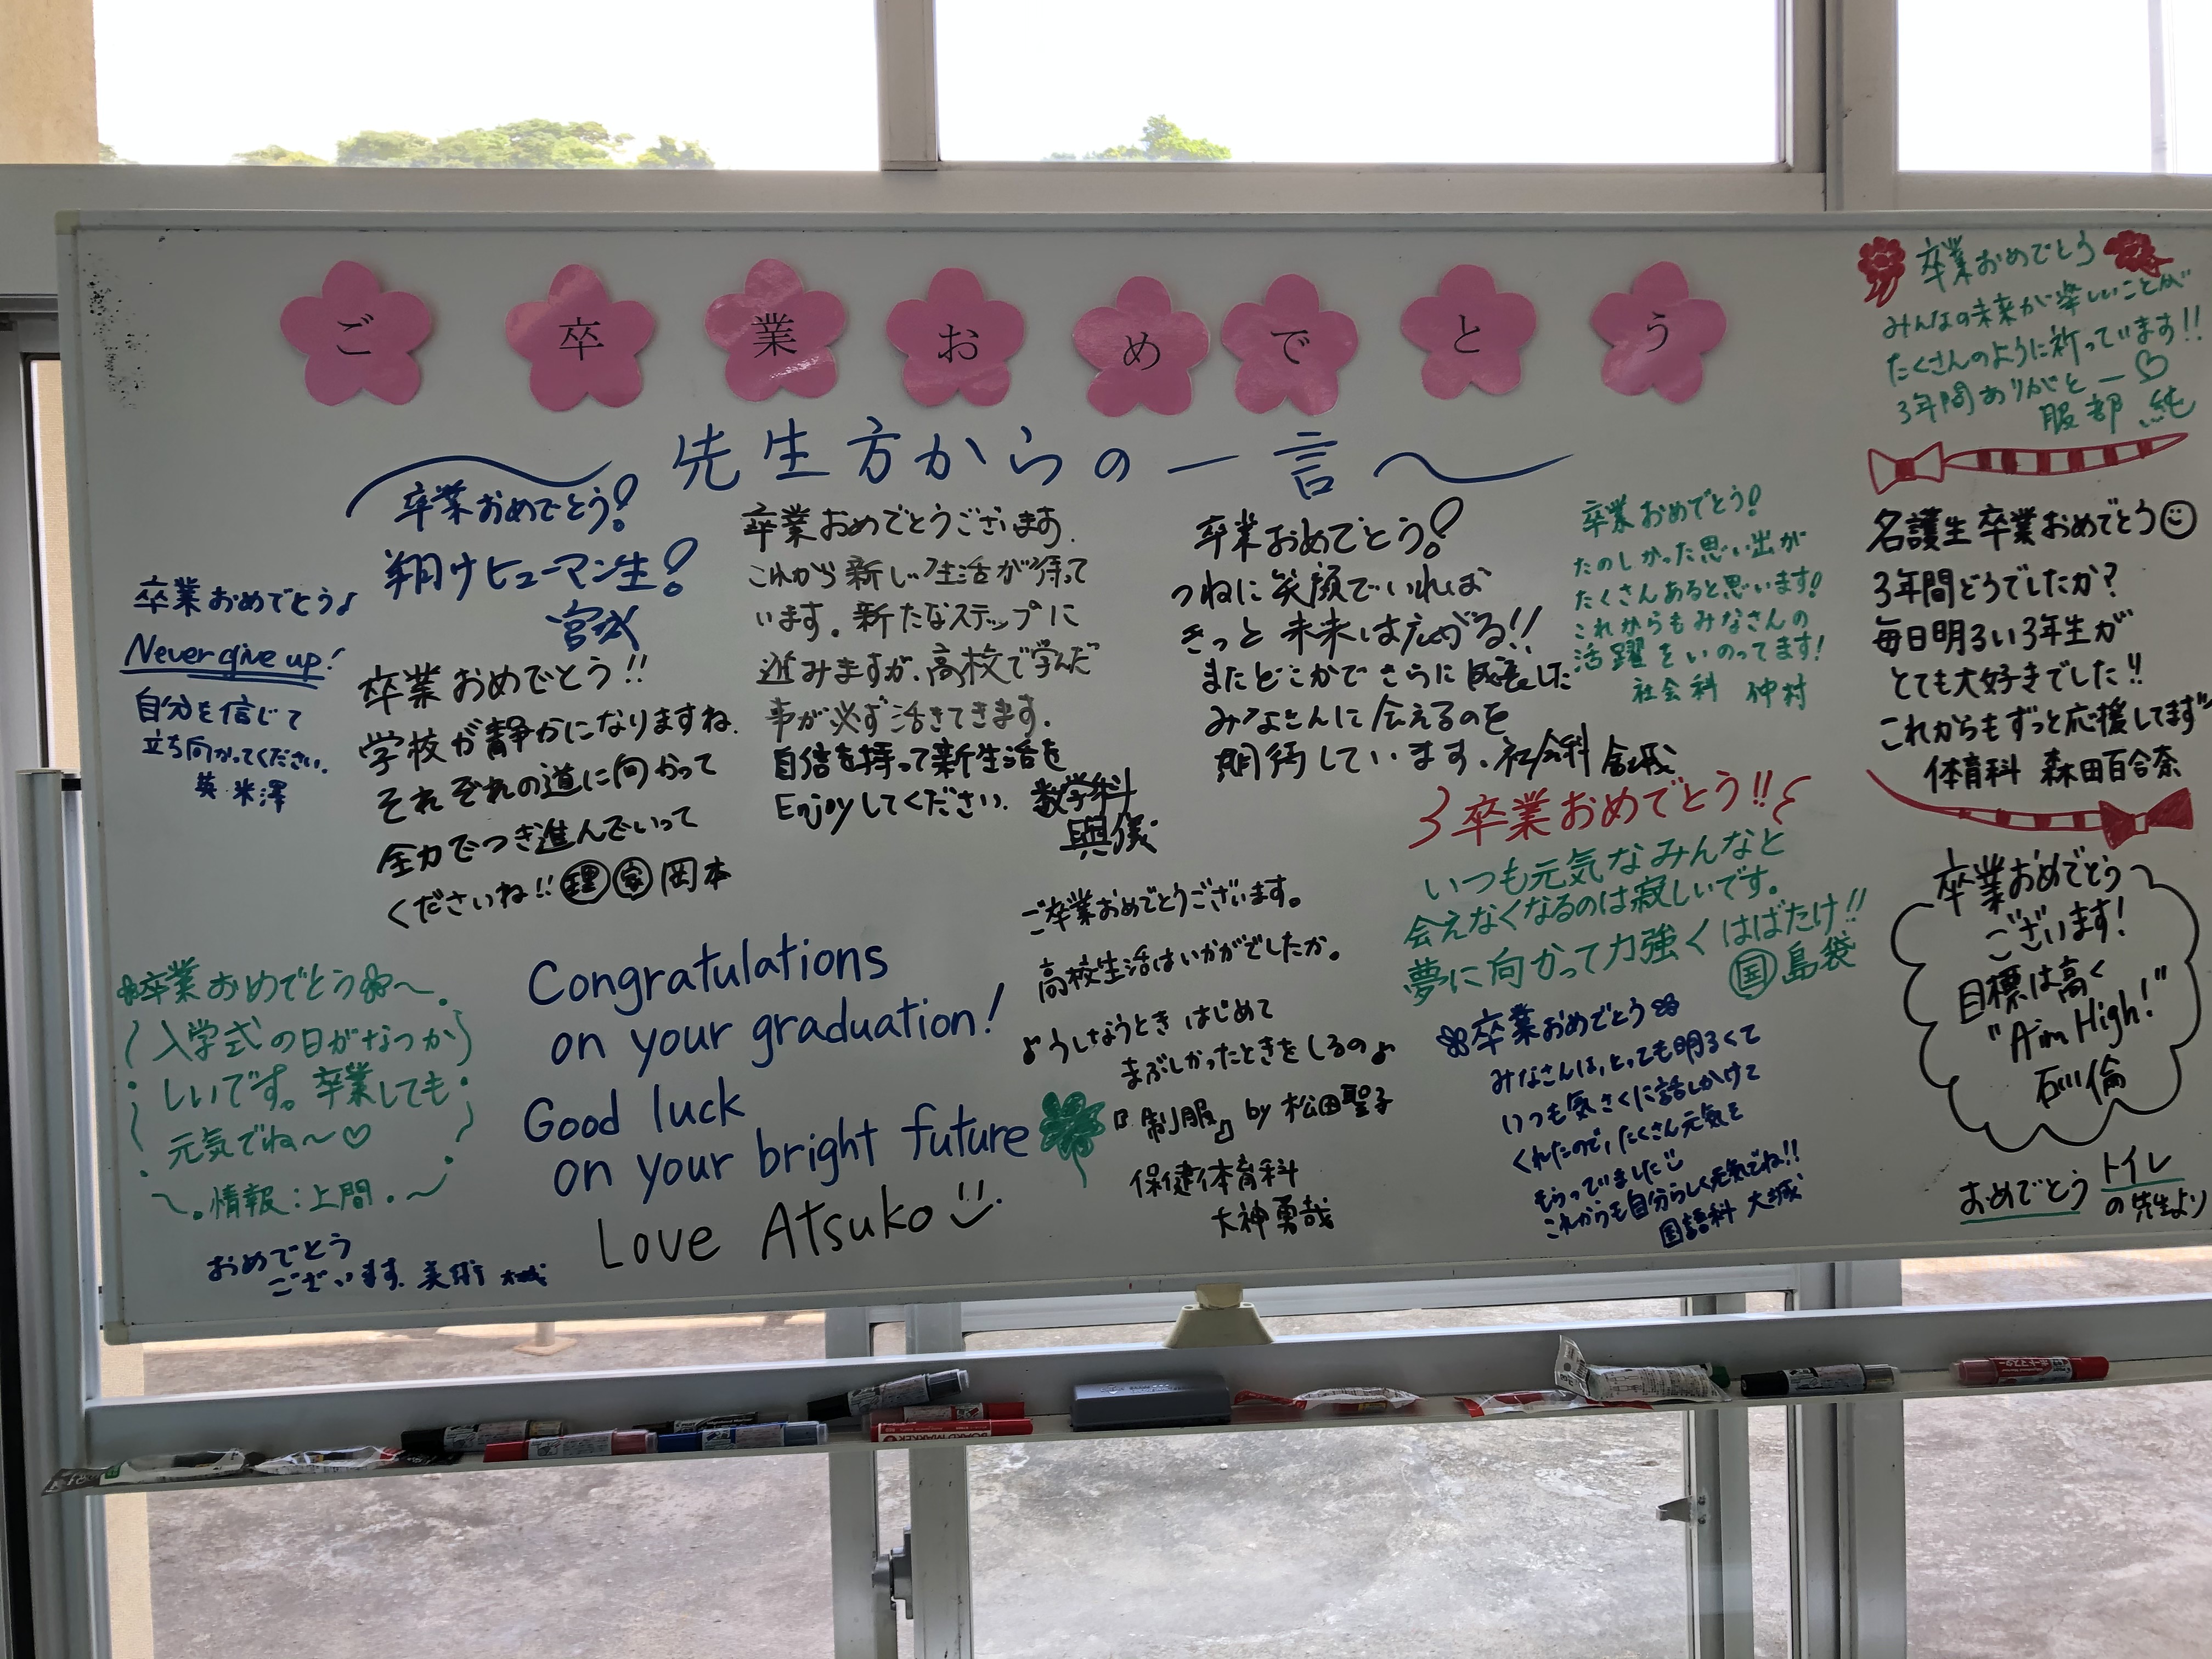 ご卒業おめでとう
先生方からの一言
卒業おめでとう♪
Never give up!
自分を信じて
立ち向かってください。
英 米澤
卒業おめでとう!
翔けヒューマン生!
宮城
卒業おめでとう!!
学校が静かになりますね。
それぞれの道に向かって
全力でつき進んでいって
くださいね!! 理 家 岡本
卒業おめでとうございます。
これから新しい生活が待って
います。新たなステップに
進みますが、高校で学んだ
事が必ず活きてきます。
自信を持って新生活を
Enjoyしてください。 数学科
與儀
卒業おめでとう!
つねに笑顔でいれば
きっと未来は広がる!!
またどこかでさらに成長した
みなさんに会えるのを
期待しています。社会科 金城
卒業おめでとう!
たのしかった思い出が
たくさんあると思います!
これからもみなさんの
活躍をいのってます!
社会科 仲村
卒業おめでとう
みんなの未来が楽しいことが
たくさんのように祈っています!!
3年間ありがとー♡
服部 純
名護生卒業おめでとう☺
3年間どうでしたか?
毎日明るい3年生が
とても大好きでした!!
これからもずっと応援してます
体育科 森田百合奈
卒業おめでとう!!
いつも元気なみんなと
会えなくなるのは寂しいです。
夢に向かって力強くはばたけ!!
国 島袋
卒業おめでとう
ございます!
目標は高く
"Aim High!"
石川倫
おめでとう トイレ
の先生より
卒業おめでとう
みなさんは、とっても明るくて
いつも気さくに話しかけて
くれたので、たくさん元気を
もらっていました
これからも自分らしく元気でね!!
国語科 大城
ご卒業おめでとうございます。
高校生活はいかがでしたか。
♪うしなうとき はじめて
まぶしかったときをしるの♪
『制服』by 松田聖子
保健体育科
大神勇哉
Congratulations
on your graduation!
Good luck
on your bright future
Love Atsuko
卒業おめでとう~
入学式の日がなつか
しいです。卒業しても
元気でね~♡
情報:上間
おめでとう
ございます。美術
BOARD MARKER